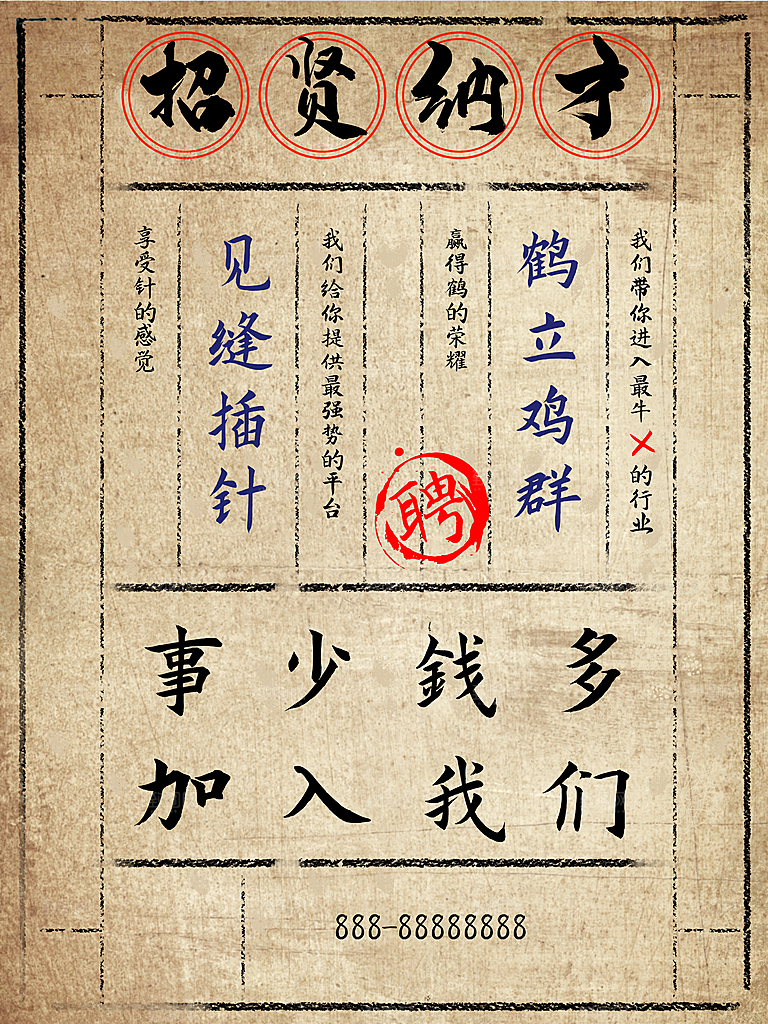 招贤纳才
我们带你进入最牛X的行业
鹤立鸡群
赢得鹤的荣耀
聘
我们给你提供最强势的平台
见缝插针
享受针的感觉
事少錢多
加入我们
888-88888888